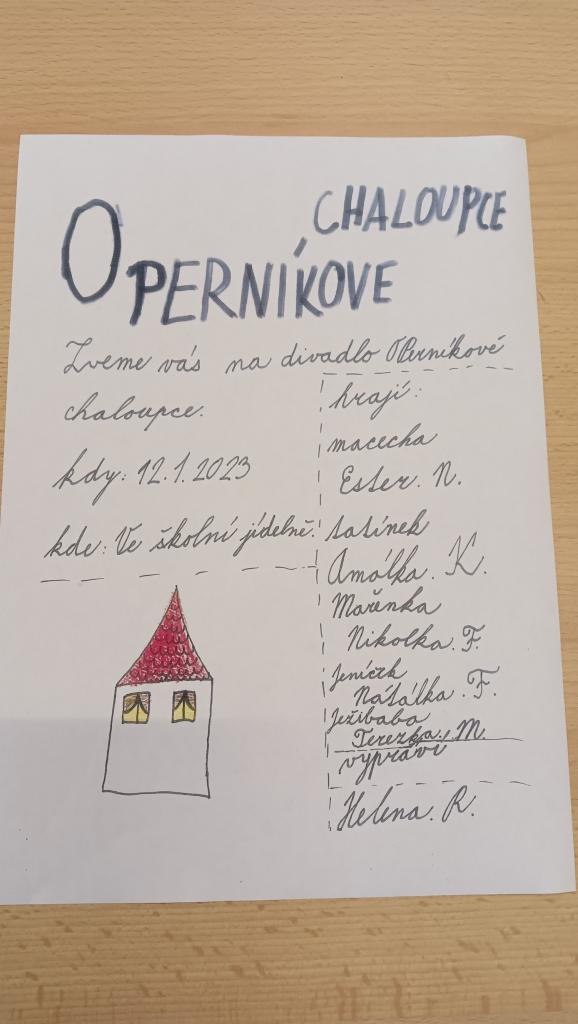 CHALOUPCE
O PERNÍKOVE
Zveme vás na divadlo O Perníkové
chaloupce.
kdy: 12.1.2023
kde: Ve školní jídelně.
hrají:
macecha
Ester. N.
tatínek
Amálka. K.
Mařenka
Nikolka. F.
Jeníček
Natálka. F.
Ježibaba
Terezka. M.
vypráví
Helena. R.